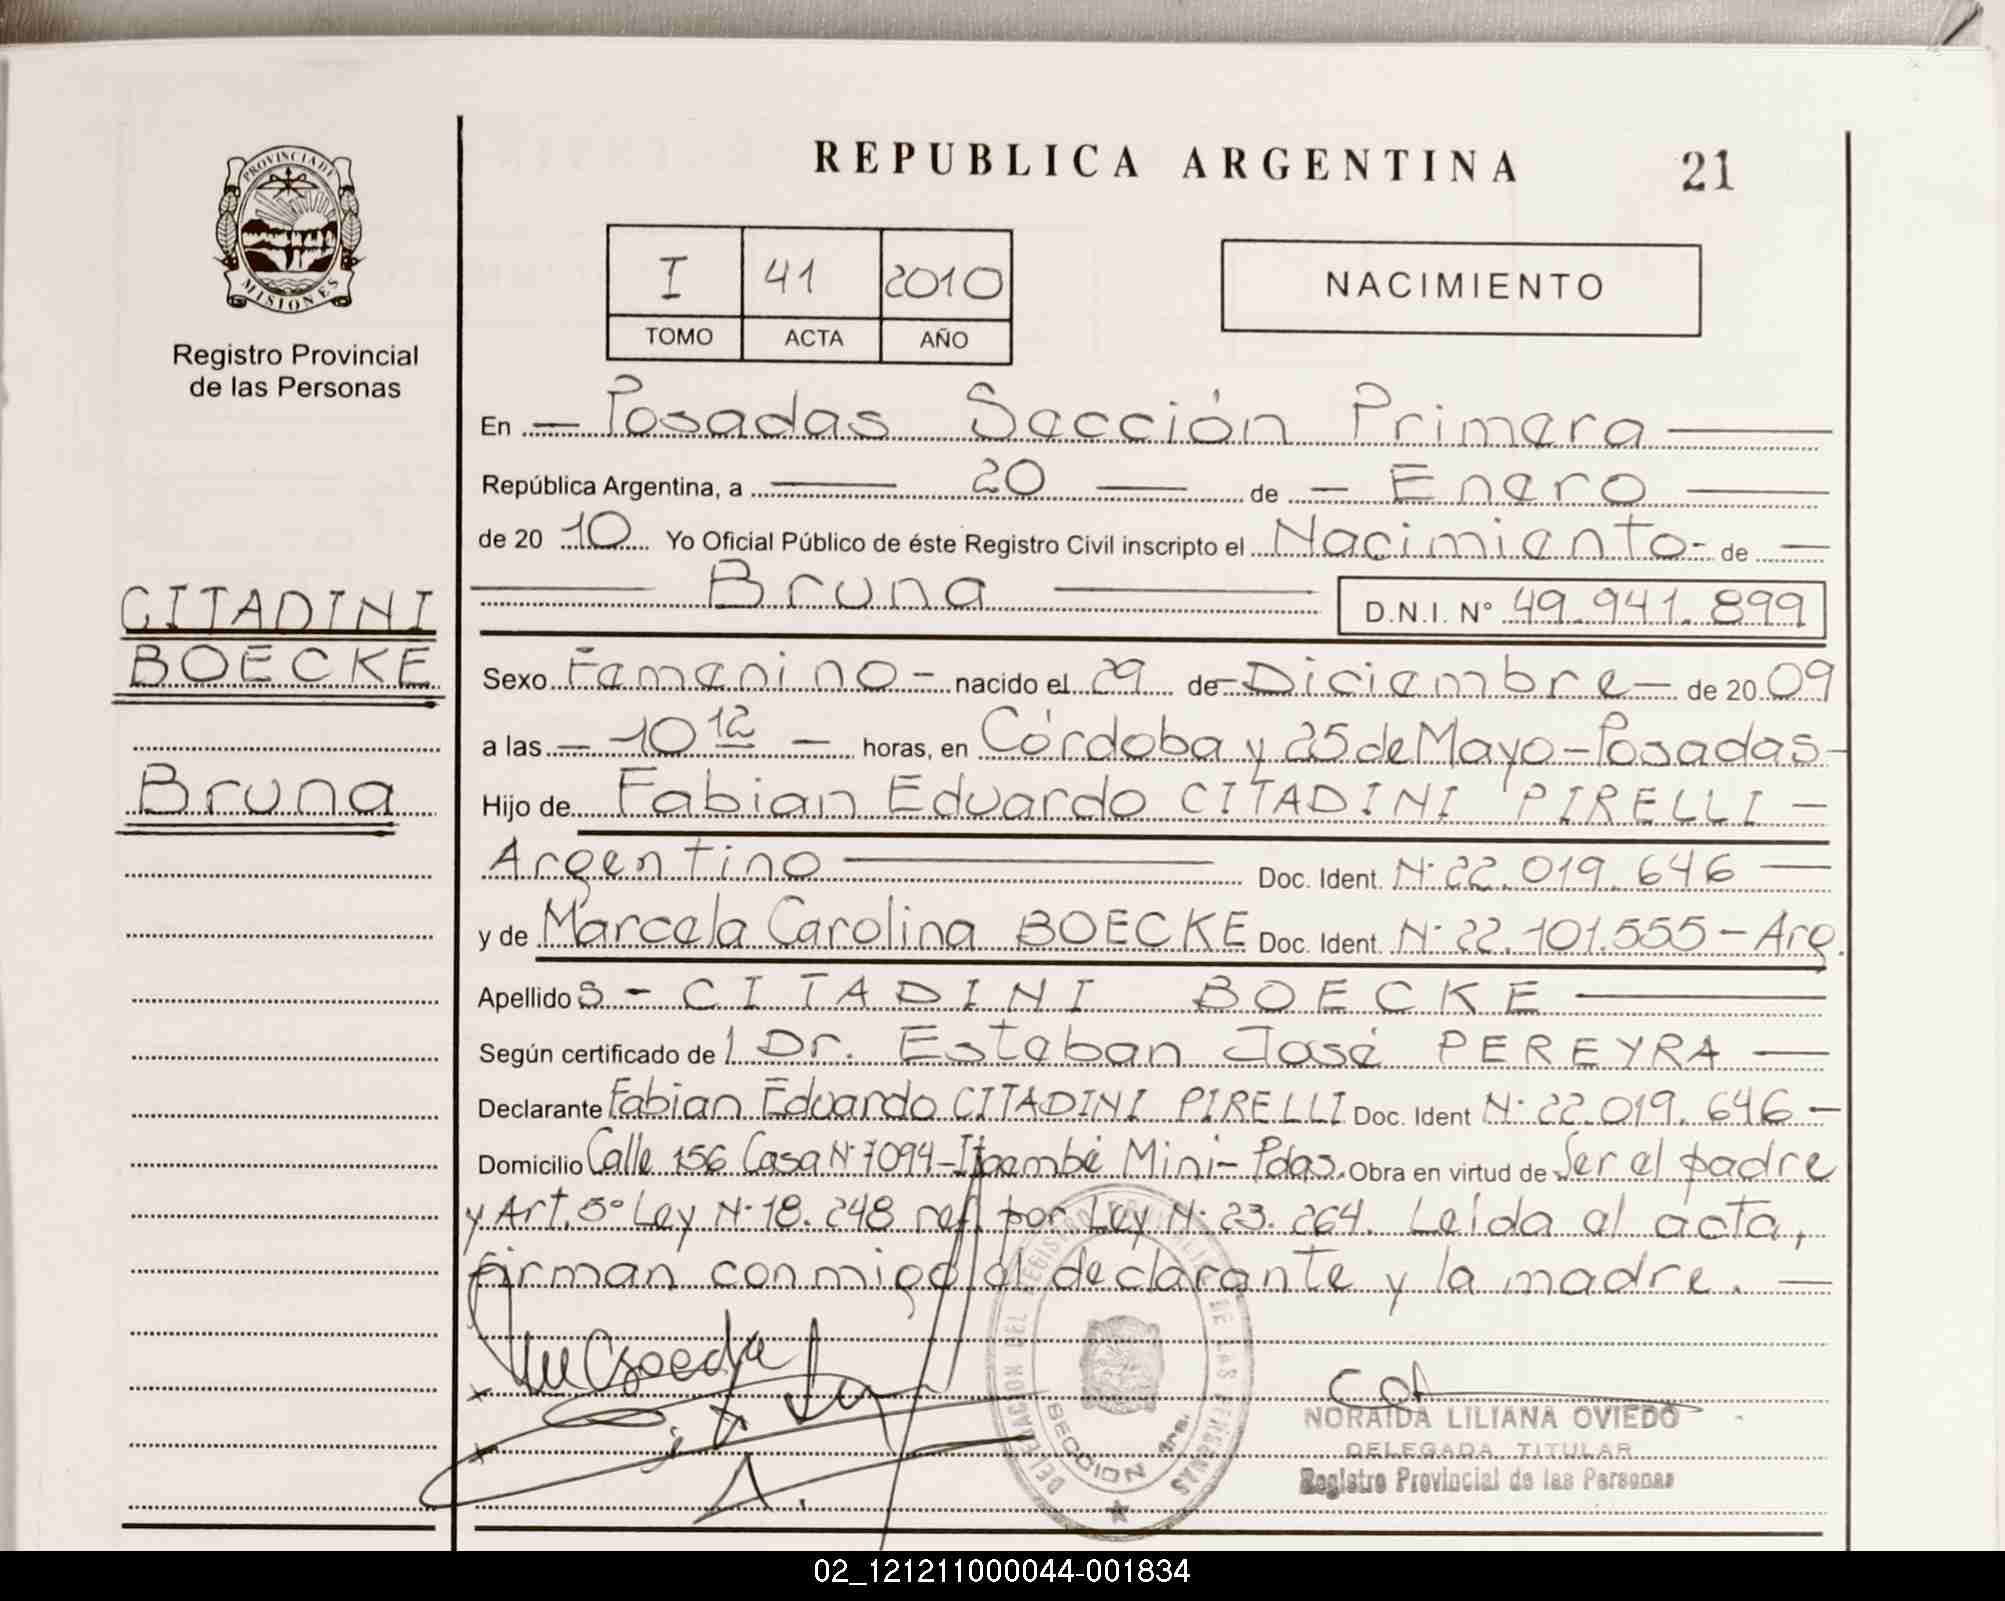 REPUBLICA ARGENTINA 21
PROVINCIA DE
MISIONES
Registro Provincial
de las Personas
I 41 2010
TOMO ACTA AÑO
NACIMIENTO
CITADINI
BOECKE
Bruna
En Posadas Sección Primera
República Argentina, a 20 de Enero
de 2010 Yo Oficial Público de éste Registro Civil inscripto el Nacimiento de
Bruna D.N.I. N° 49.941.899
Sexo Femenino nacido el 29 de Diciembre de 2009
a las 10 12 horas, en Córdoba y 25 de Mayo - Posadas -
Hijo de Fabian Eduardo CITADINI PIRELLI -
Argentino Doc. Ident. N° 22.019.646
y de Marcela Carolina BOECKE Doc. Ident. N° 22.101.555 - Arg.
Apellidos - CITADINI BOECKE
Según certificado de l Dr. Esteban José PEREYRA
Declarante Fabian Eduardo CITADINI PIRELLI Doc. Ident N° 22.019.646 -
Domicilio Calle 156 Casa N° 7094 - Itaembé Mini - Pdas. Obra en virtud de Ser el padre
y Art. 5° Ley N° 18.248 ref. por Ley N° 23.264. Leída el acta,
firman conmigo el declarante y la madre.
DELEGACION DEL REGISTRO DE LAS PERSONAS
SECCION
NORAIDA LILIANA OVIEDO
DELEGADA TITULAR
Registro Provincial de las Personas
02_121211000044-001834